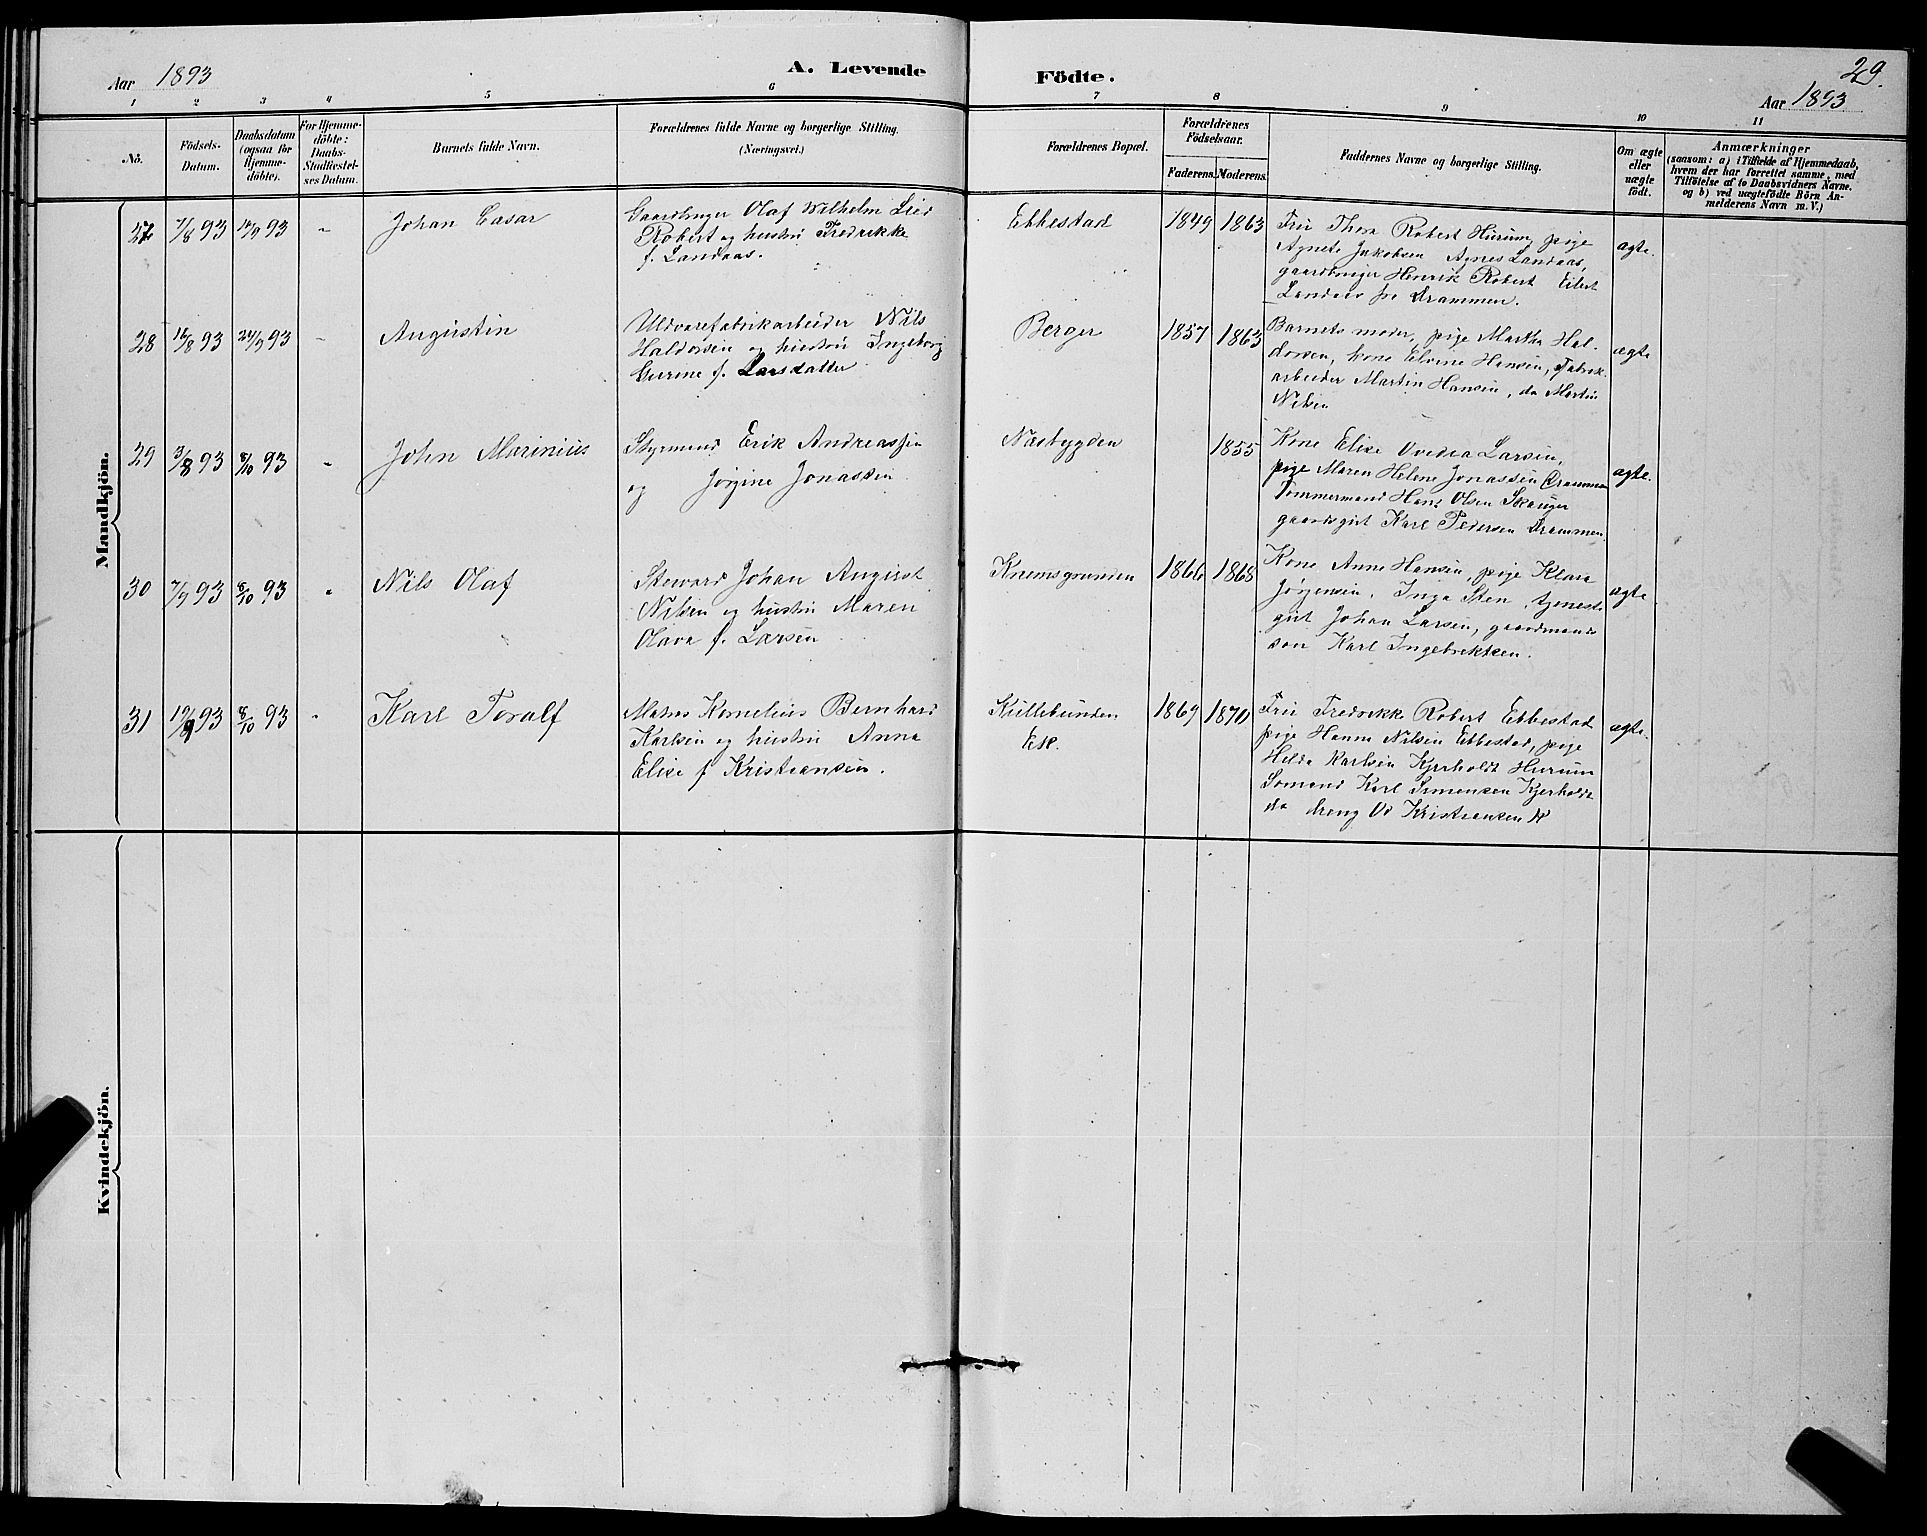 Aar 1893
A. Levende
Födte.
29.
Aar 1893
1 2 3 4 5 6 7 8 9 10 11
Nö.
Födsels-
Datum.
Daabsdatum
(ogsaa for
Hjemme-
döbte).
For Hjemme-
döbte:
Daabs-
Stadfæstel-
ses Datum.
Barnets fulde Navn.
Forældrenes fulde Navne og borgerlige Stilling.
(Næringsvei.)
Forældrenes Bopæl.
Forældrenes
Födselsaar.
Faderens. Moderens.
Faddernes Navne og borgerlige Stilling.
Om ægte
eller
uægte
födt.
Anmærkninger
(saasom: a) i Tilfælde af Hjemmedaab,
hvem der har forrettet samme, med
Tilföielse af to Daabsvidners Navne,
og b) ved uægtefödte Börn An-
melderens Navn m. V.)
Mandkjön.
27 7/8 93 17/9 93 - Johan Casar
Gaardbruger Olaf Wilhelm Lied
Robert og hustru Fredrikke
f. Landaas.
Ebbestad 1849 1863
Fru Thora Robert Hurum, pige
Agnete Jakobsen Agnes Landaas,
gaardbruger Henrik Robert Eilert
Landaas fra Drammen.
ægte.
28 12/8 93 24/9 93 - Augustin
Uldvarefabrikarbeider Nils
Haldorsen og hustru Ingeborg
Gurine f. Larsdatter
Berger 1857 1863
Barnets moder, pige Martha Hal-
dorsen, kone Elvine Hansen, Fabrik-
arbeider Martin Hansen, do Martin
Nilsen
ægte
29 3/8 93 8/10 93 - John Marinius
Styrmand Erik Andreassen
og Jørgine Jonassen
Næsbygden 1855
Kone Elise Ovedia Larsen,
pige Maren Helene Jonassen Drammen
Tømmermand Hans Olsen Skauger
gaardsgut Karl Pedersen Drammen.
ægte.
30 7/9 93 8/10 93 - Nils Olaf
Steward Johan August
Nilsen og hustru Maren
Olava f. Larsen
Knemsgrunden 1866 1868
Kone Anne Hansen, pige Klara
Jørgensen, Inga Sten, tjenest-
gut Johan Larsen, gaardmands
søn Karl Ingebrektsen.
ægte
31 19/9 93 8/10 93 - Karl Toralf
Matros Kornelius Bernhard
Karlsen og hustru Anna
Elise f Kristiansen.
Killebunden
1869 1870
Fru Fredrikke Robert Ebbestad
pige Hanna Nilsen Ebbestad, pige
Helda Karlsen Kjerholdt Hurum
Sømand Karl Simonsen Kjerholdt
do dreng Kristiansen
ægte.
Kvindekjön.